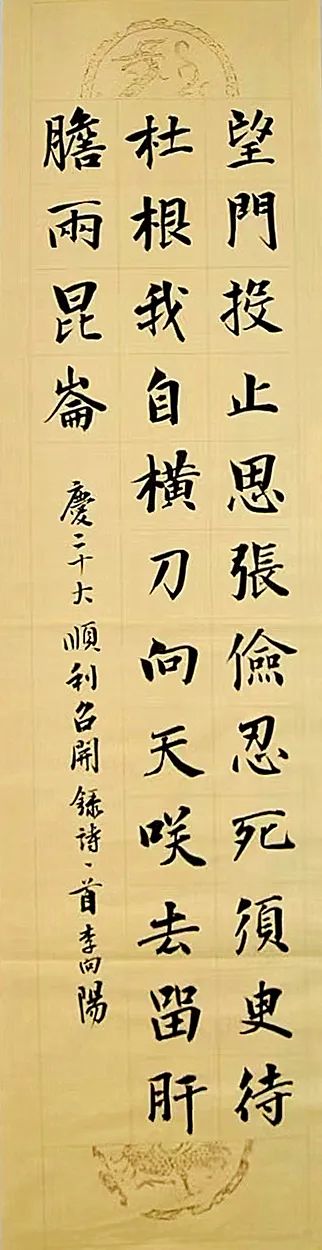 望門投止思張儉忍死須更待
杜根我自橫刀向天咲去留肝
膽兩昆崙
慶二十大順利召開錄詩一首李向陽